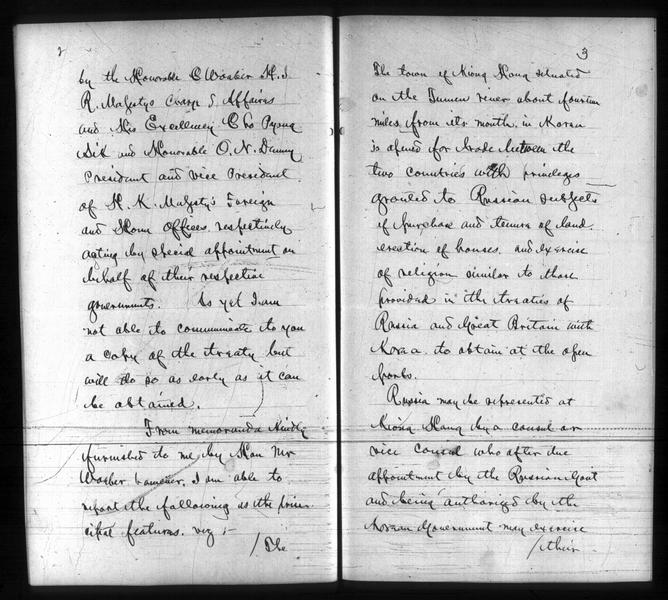 2
by the Honorable C Waeber H. I
R. Majestys Charge d Affaires
and His Excellency Cho Pyong
Sik and Honorable O. N. Denny
President and Vice President
of H. K. Majesty's Foreign
and Home Offices, respectively
acting by special appointment on
behalf of their respective
governments. As yet I am
not able to communicate to you
a copy of the treaty but
will do so as early as it can
be obtained.
From memoranda kindly
furnished to me by Hon Mr
Waeber however, I am able to
report the following as the prin-
cipal features. viz :-
/The
3
The town of Kiong Hung situated
on the Tumen river about fourteen
miles from its mouth in Korea
is opened for trade between the
two countries with privileges
granted to Russian subjects
of purchase and tenure of land
erection of houses and exercise
of religion similar to those
provided in the treaties of
Russia and Great Britain with
Korea to obtain at the open
ports.
Russia may be represented at
Kiong Hung by a consul or
vice consul who after due
appointment by the Russian Govt
and being authorized by the
Korean Government may exercise
/their